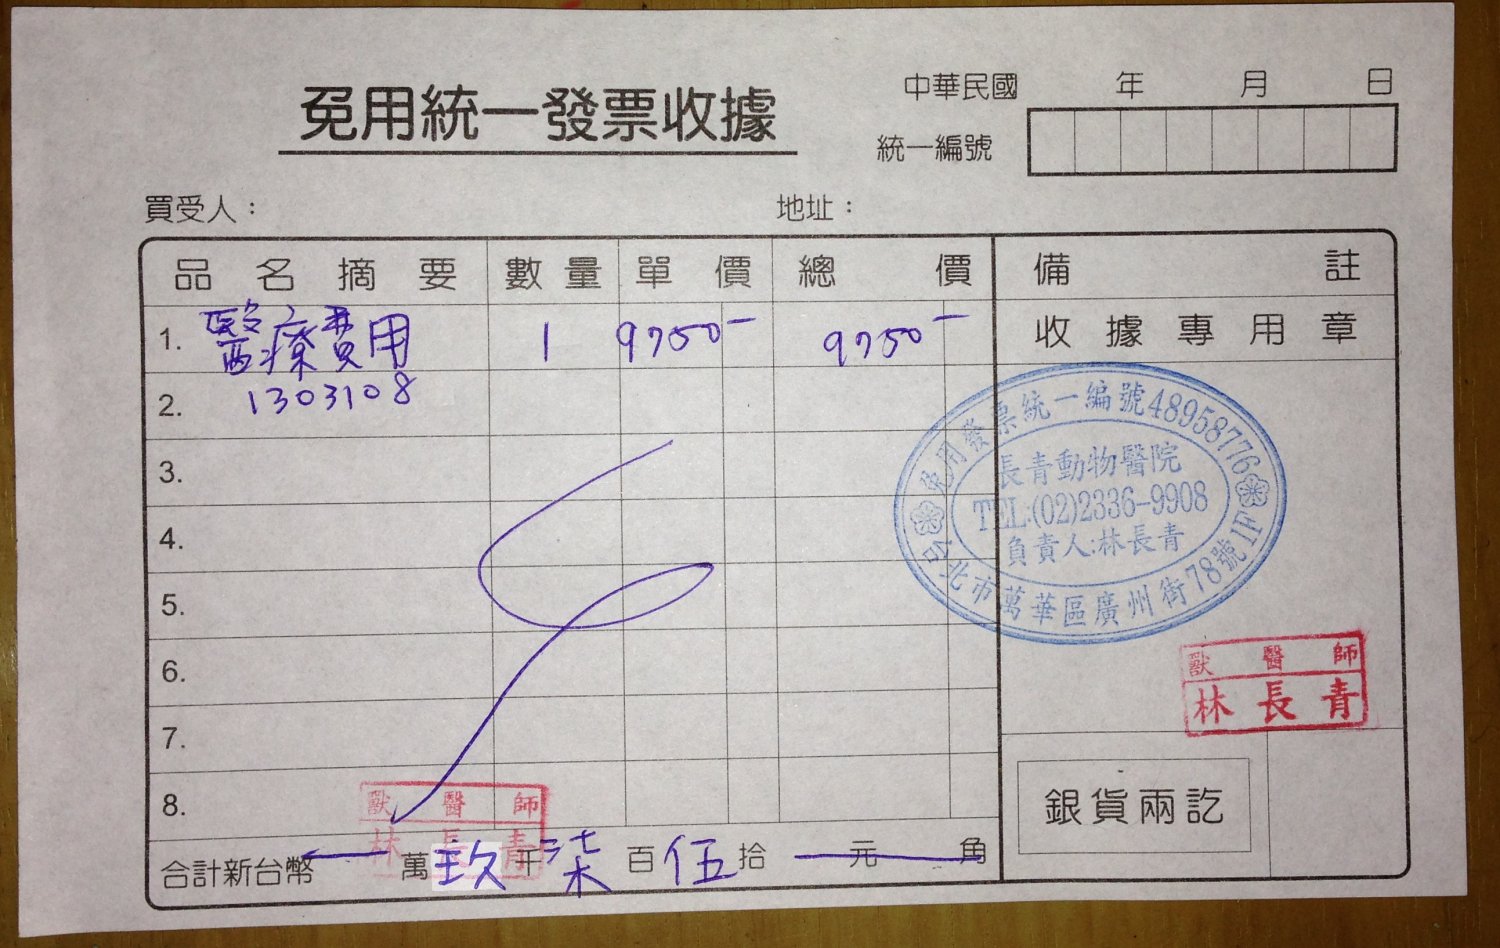 免用統一發票收據
中華民國 年 月 日
統一編號
買受人： 地址：
品名摘要 數量 單價 總價 備註
1. 醫療費用 1 9750- 9750- 收據專用章
2. 1303108
3.
4.
5.
6.
7.
8.
免用發票統一編號48958776
長青動物醫院
TEL:(02)2336-9908
負責人:林長青
台北市萬華區廣州街78號1F
獸醫師
林長青
獸醫師
林長青
銀貨兩訖
合計新台幣 萬玖仟柒百伍拾 元 角